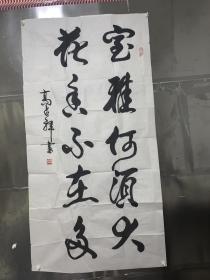 室雅何须大
花香不在多
高占祥书